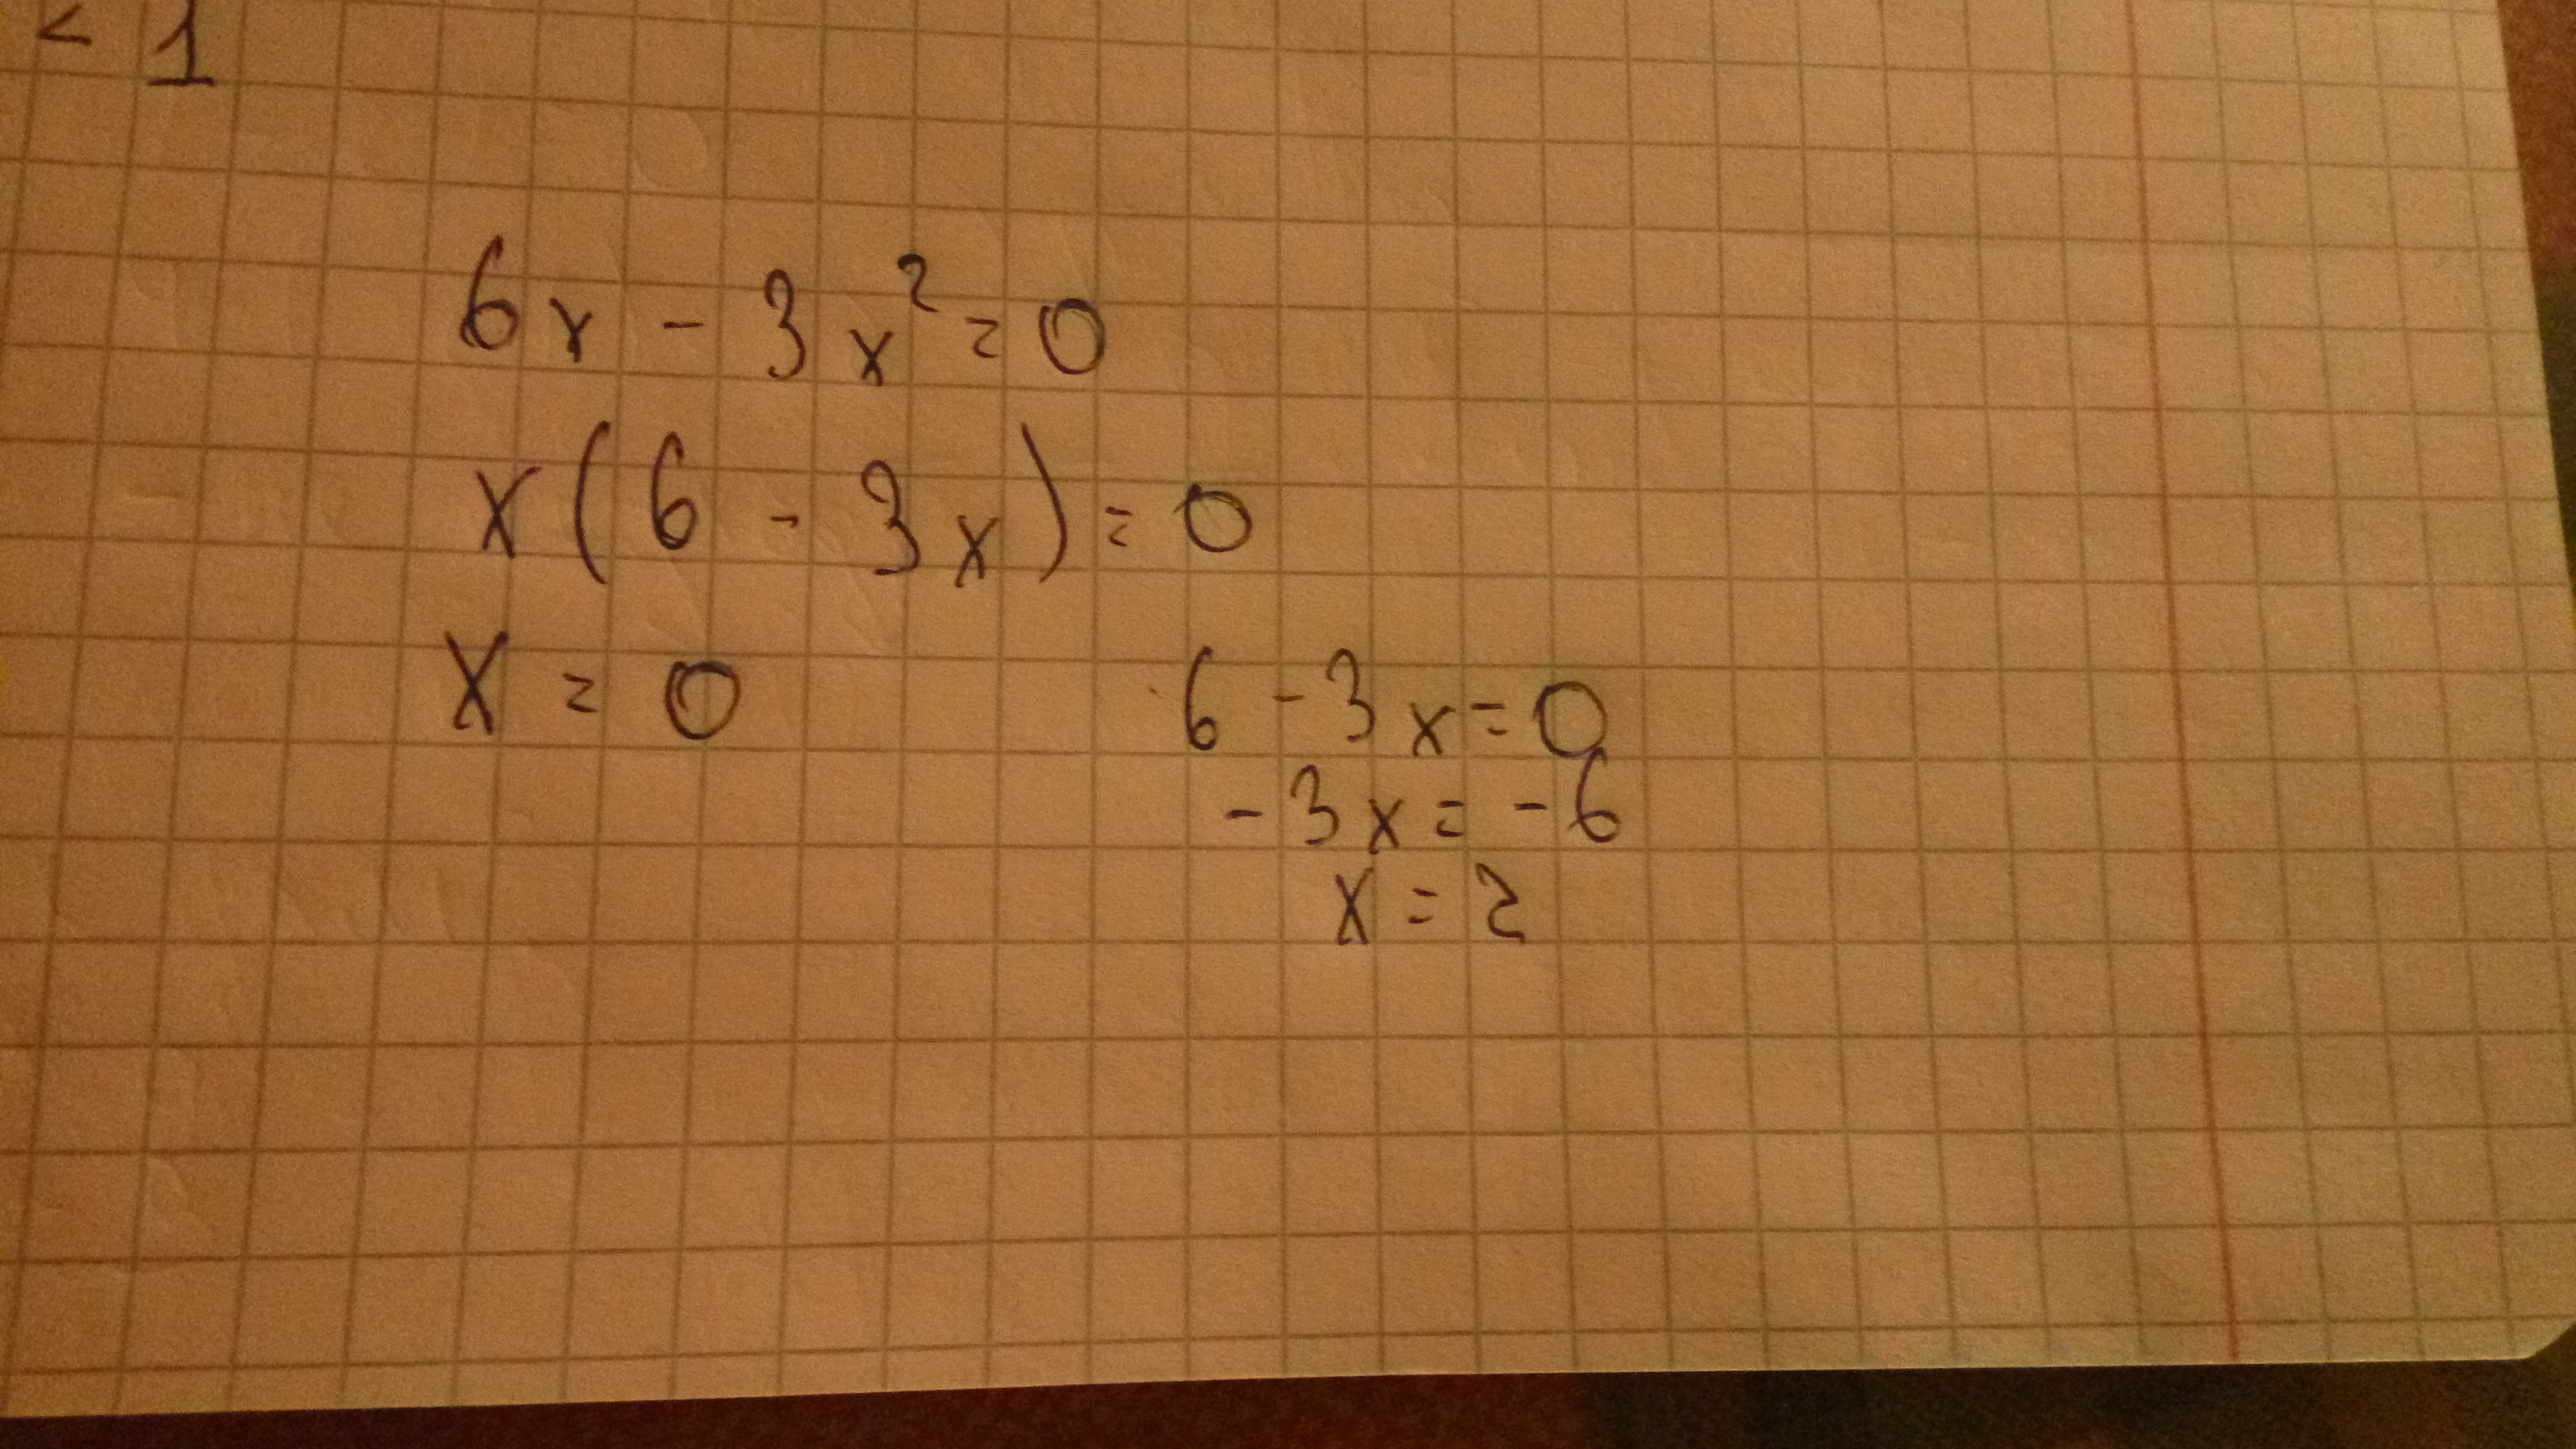 < 1
6x - 3x² = 0
x(6 - 3x) = 0
x = 0
6 - 3x = 0
-3x = -6
x = 2